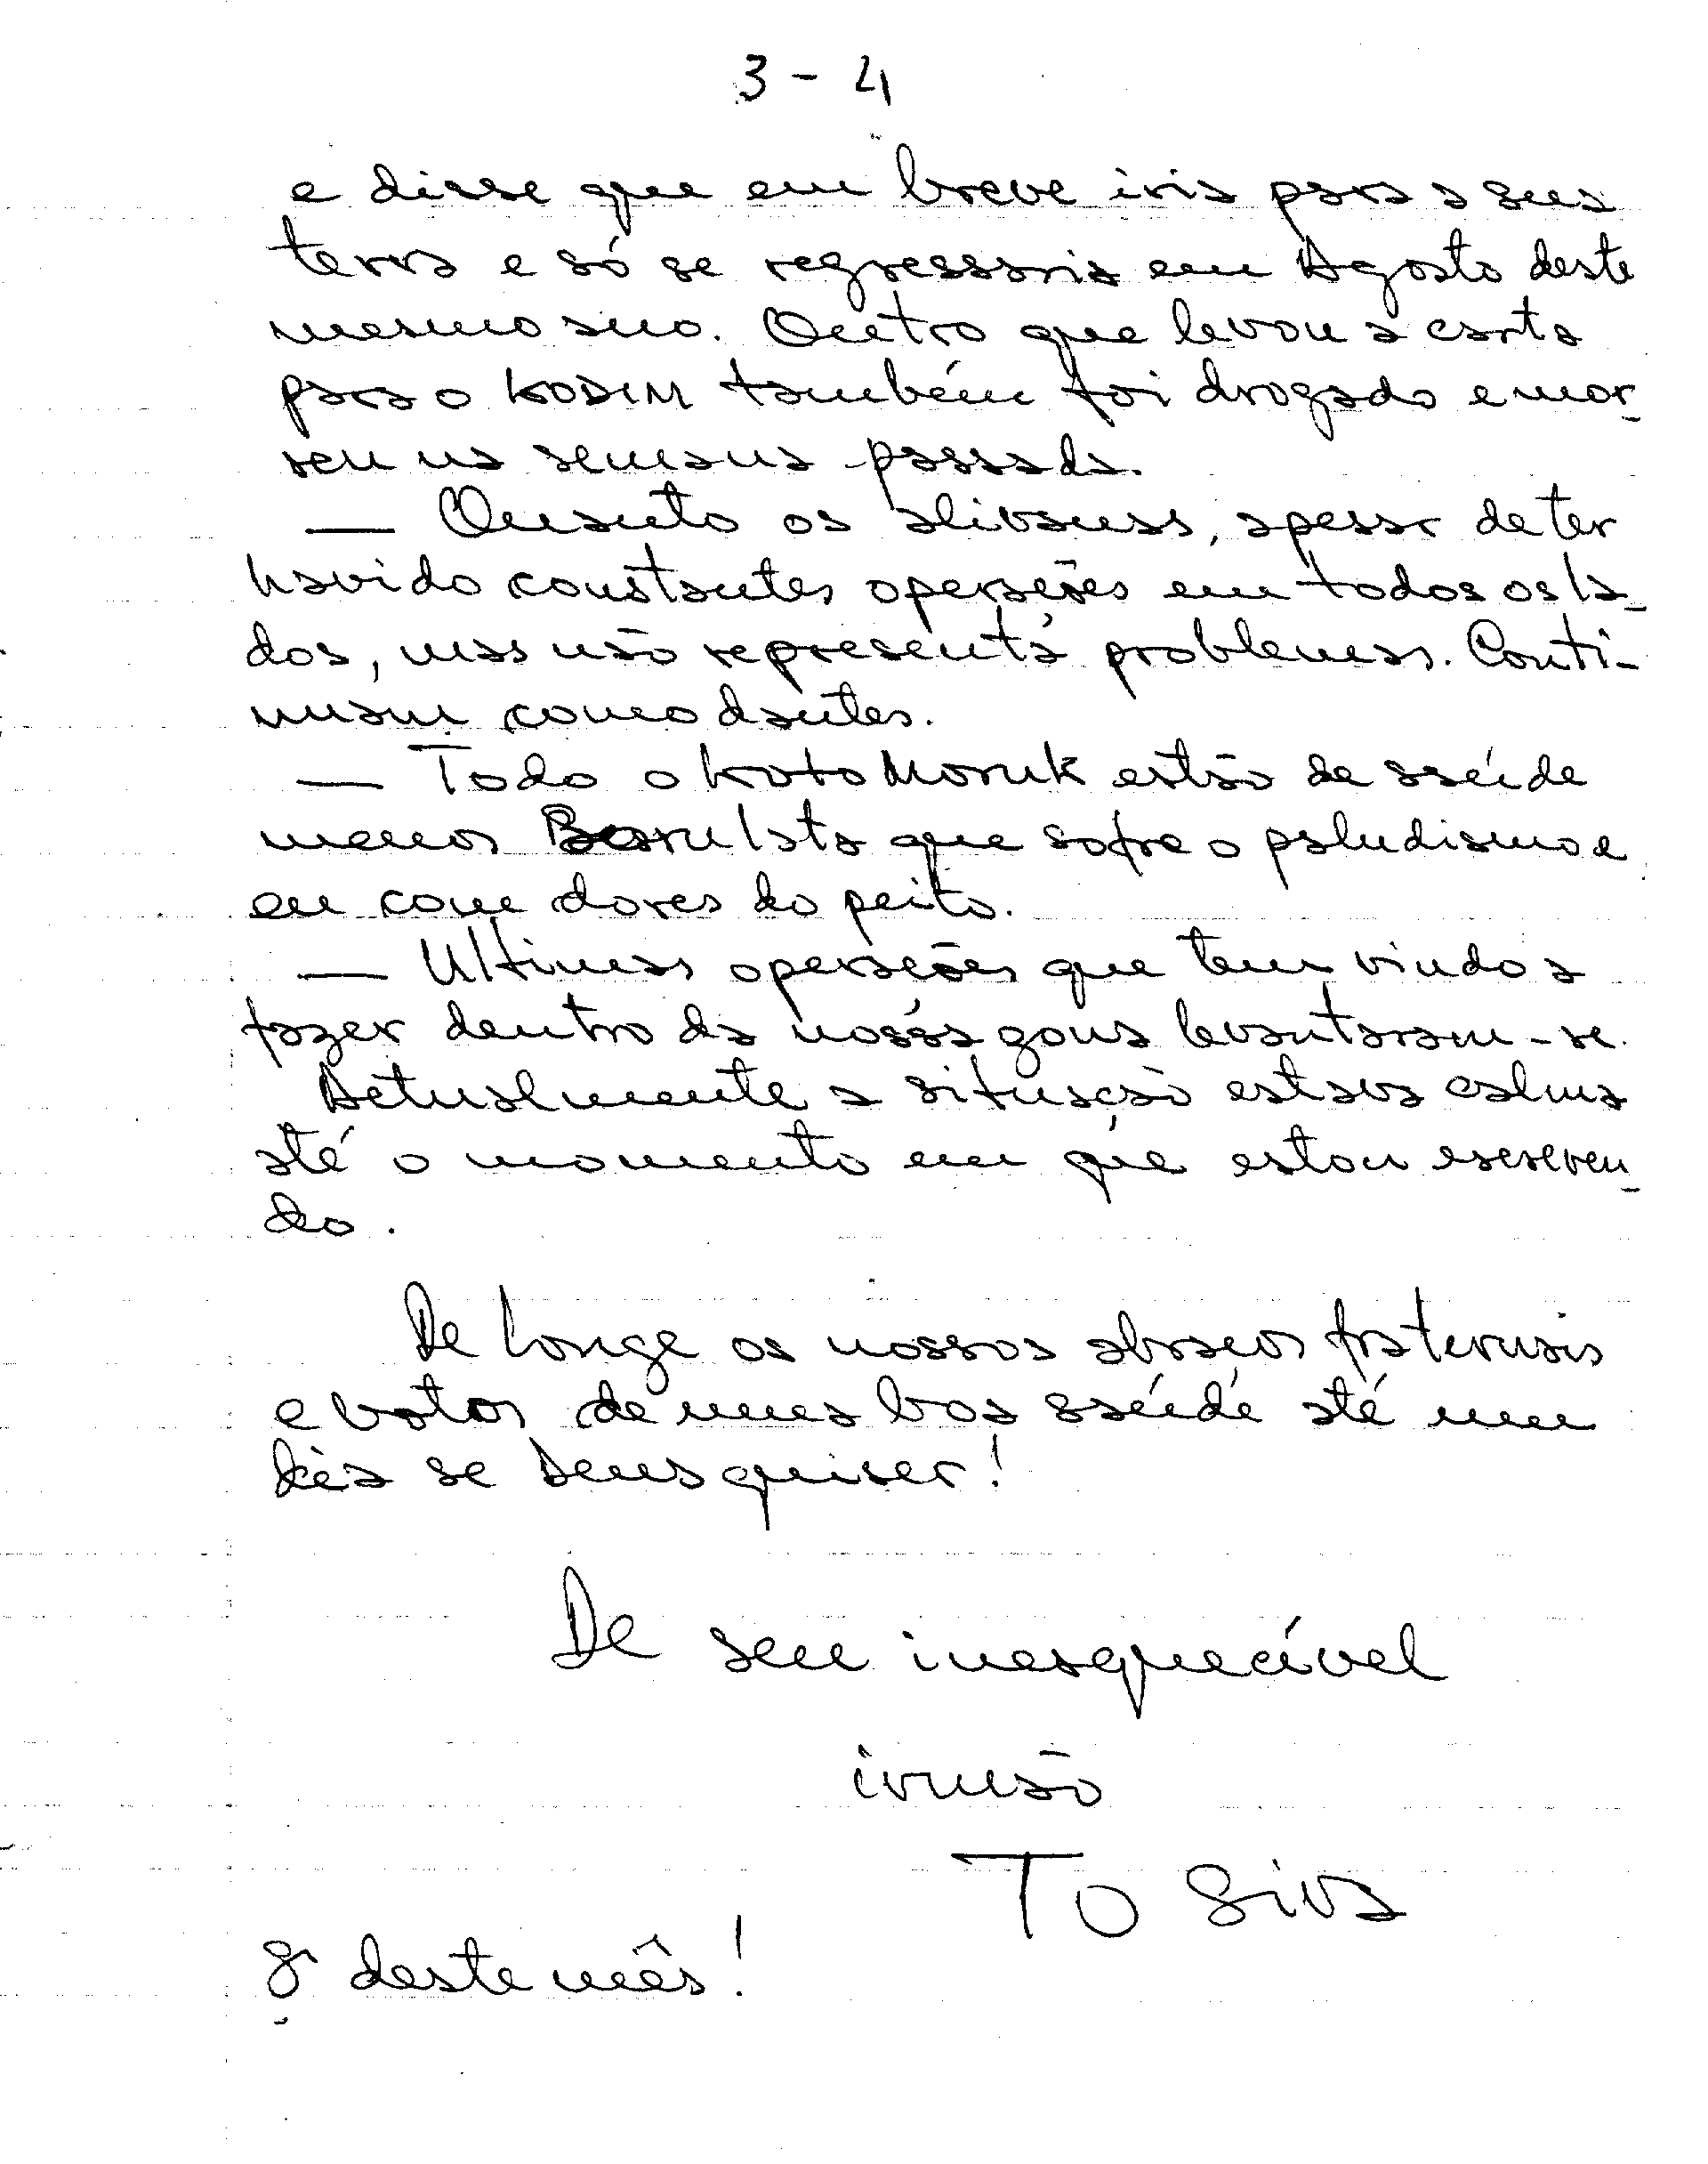 3 - 4
e disse que em breve iria para a sua
terra e só se regressaria em Agosto deste
mesmo ano. Outro que levou a carta
para o KODIM também foi drogado e mor-
reu na semana passada.
— Quanto os alivanas, apesar de ter
havido constantes operações em todos os la-
dos, mas não representa problemas. Conti-
nuam como dantes.
— Todo o Koto Moruk estão de saúde
menos Baru Lata que sofre o paludismo e
eu com dores do peito.
— Ultimas operações que tem vindo a
fazer dentro da nossa zona levantaram-se.
Actualmente a situação estava calma
até o momento em que estou escreven-
do.
De Longe os nossos abraços fraternais
e votos de uma boa saúde até um
dia se Deus quiser!
De seu inesquecível
irmão
To Siva
8 deste mês!